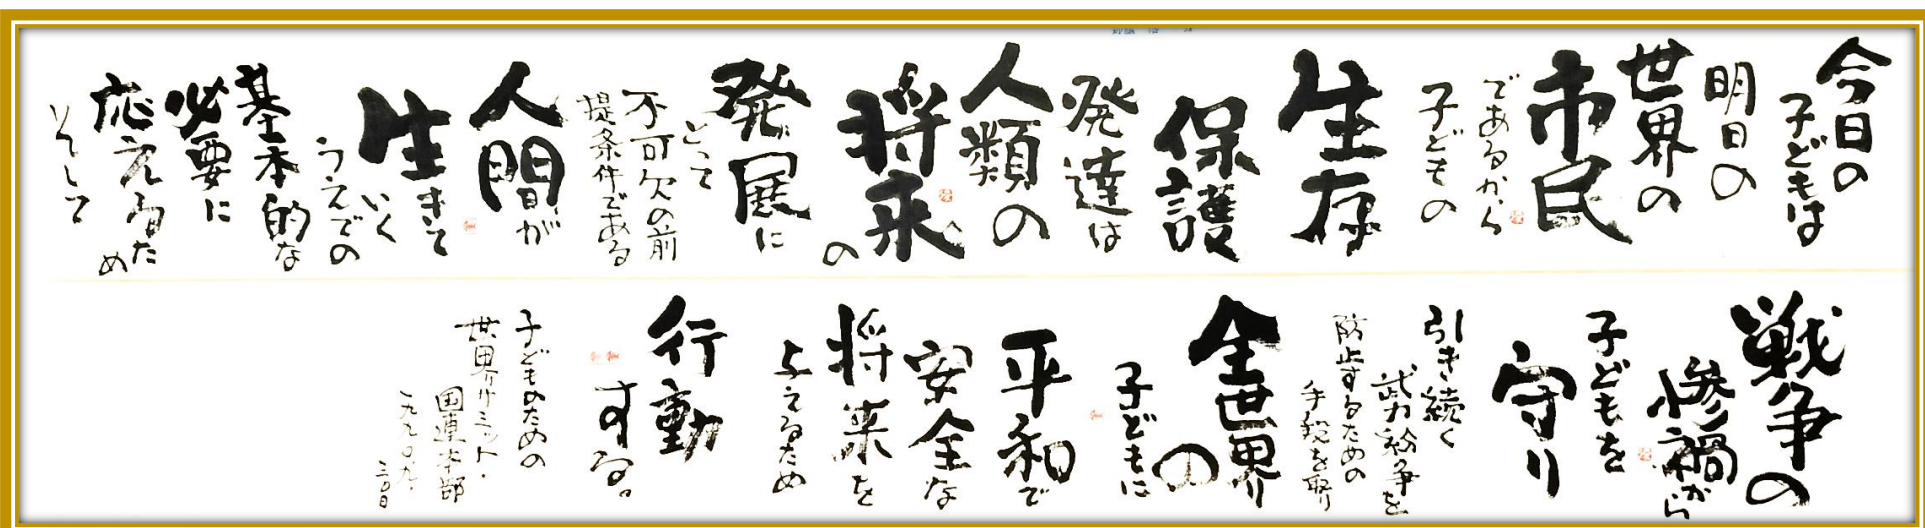 今日の
子どもは
明日の
世界の
市民
であるから
子どもの
生存
保護
発達は
人類の
将来
の
発展に
とって
不可欠の前
提条件である
人間が
生きて
いく
うえでの
基本的な
必要に
応えるた
め
そして
戦争の
惨禍から
子どもを
守り
引き続く
武力紛争を
防止するための
手段を取り
全世界
の
子どもに
平和で
安全な
将来を
与えるため
行動
する。
子どものための
世界サミット・
国連本部
一九九〇九・
三〇日